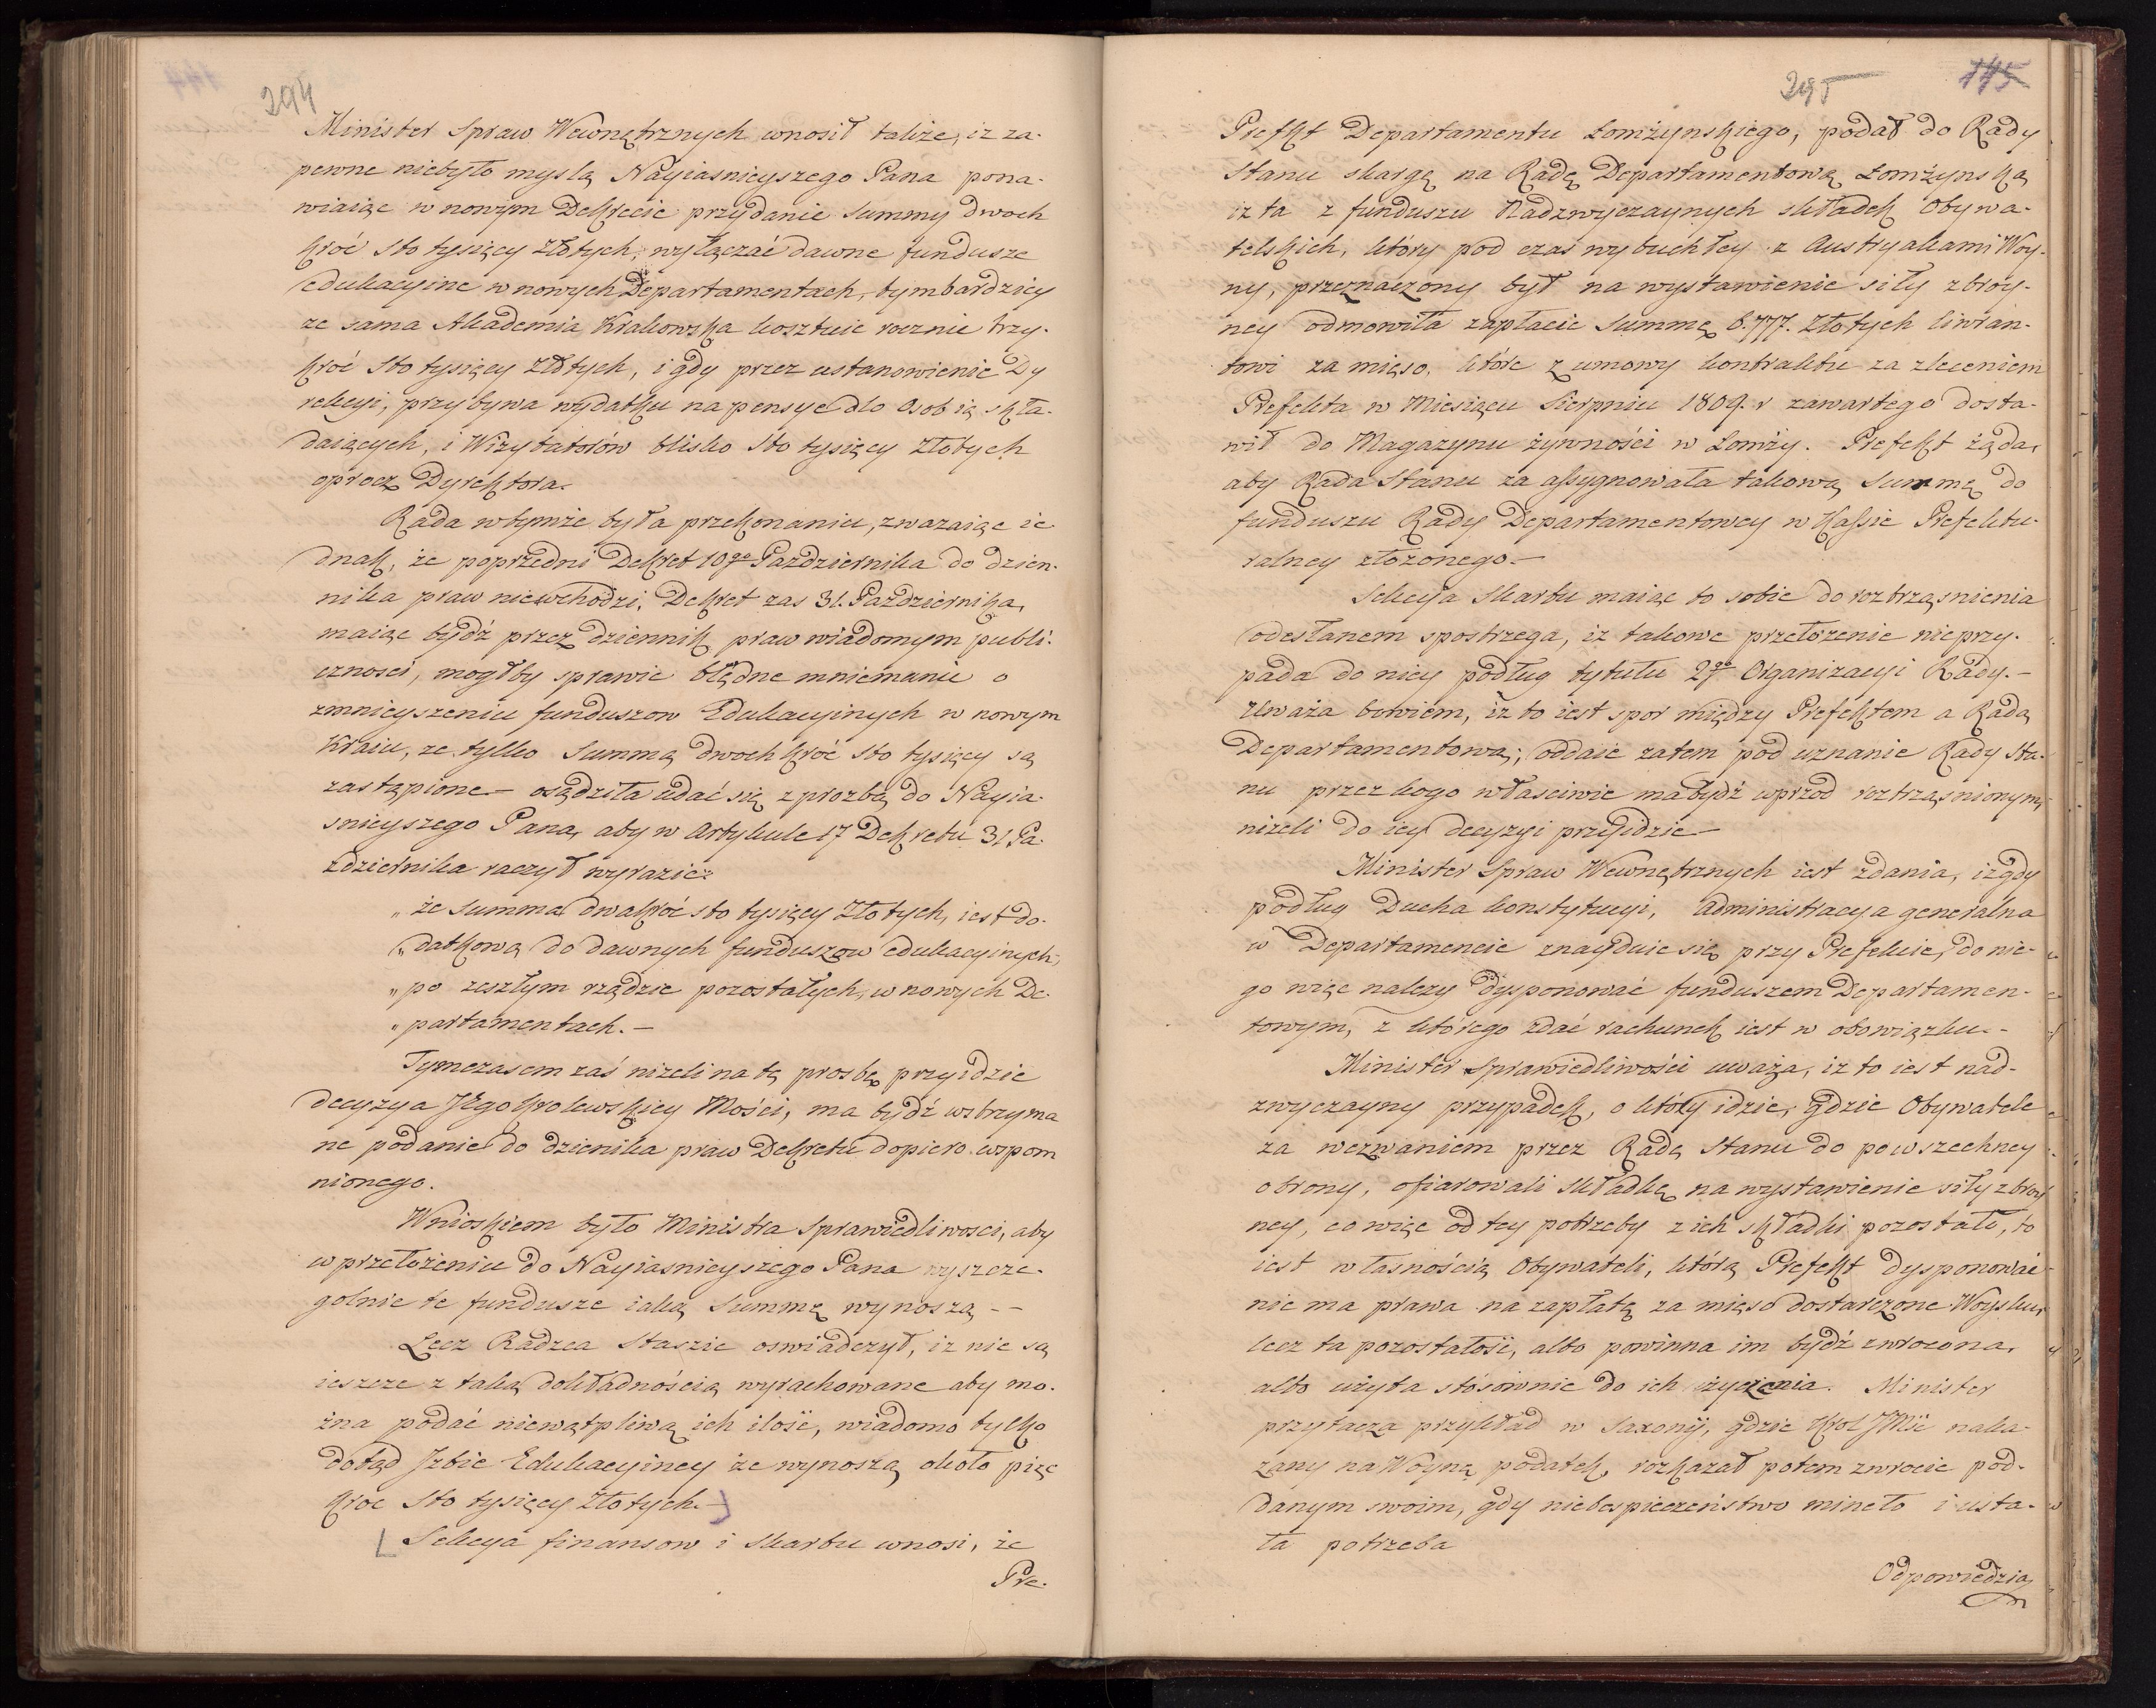 294
Minister Spraw Wewnętrznych wnosił także, iz za-
pewne niebyło myslą Nayiasnieyszego Pana pona-
wiaiąc w nowym Dekrecie przydanie Summy dwoch
kroć Sto tysięcy Złotych, wyłączać dawne fundusze
edukacyine w nowych Departamentach, tymbardziey
ze sama Akademia Krakowska kosztuie rocznie trzy-
kroć Sto tysięcy Złotych, i gdy przez ustanowienie Dy
rekcyi, przybywa wydatku na pensye dlo Osob ią skła-
daiących, i Wizytatorów blisko Sto tysięcy Złotych
oprocz Dyrektora.
Rada wtymże była przekonaniu, zwazaiąc ie
dnak, że poprzedni Dekret 10go Pazdziernika do dzien-
nika praw niewchodzi, Dekret zas 31. Pazdziernika,
maiąc bydź przez dziennik praw wiadomym publi-
cznosci, mogłby sprawic błędne mniemanie o
zmnieyszeniu funduszow Edukacyinych w nowym
Kraiu, ze tylko Summą dwoch kroć Sto tysięcy są
zastąpione – osądziła udać się z prozbą do Nayia-
snieyszego Pana, aby w Artykule 17 Dekretu 31 Pa-
zdziernika raczył wyrazic:
„ że Summa dwakroć sto tysięcy Złotych, iest do-
„ datkową do dawnych funduszow edukacyinych,
„ po zeszłym rządzie pozostałych, w nowych De-
„ partamentach. –
Tymczasem zaś nizeli na tę prosbę przyidzie
decyzya JEgo Krolewskiey Mości, ma bydź wstrzyma
ne podanie do dzienika praw Dekretu dopiero wspom
nionego.
Wnioskiem było Ministra Sprawiedliwosci, aby
w przełożeniu do Nayiasnieyszego Pana wyszcze-
golnic te fundusze iaką Summę wynoszą – –
Lecz Radzca Staszic oswiadczył, iz nie są
ieszcze z taką dokładnością wyrachowane aby mo-
żna podać niewątpliwą ich ilość, wiadomo tylko
dotąd Jzbie Edukacyiney że wynoszą około pięc
kroc Sto tysięcy Złotych. –
Sekcya finansow i Skarbu wnosi, że
Pre-
295
115
Prefekt Departamentu Łomżynskiego, podał do Rady
Stanu skargę na Radę Departamentową Łomżynską
iz ta z funduszu Nadzwyczaynych składek Obywa-
telskich, który pod czas wybuchłey z Austryakami Woy-
ny, przeznaczony był na wystawienie siły zbroy-
ney odmowiła zapłacic Summę 6.777. Złotych liwran-
towi za mięso, które z umowy kontraktu za zleceniem
Prefekta w Miesiącu Sierpniu 1809. r zawartego dosta-
wił do Magazynu żywności w Łomży. Prefekt żąda,
aby Rada Stanu za assygnowała takową Summę do
funduszu Rady Departamentowey w Kassie Prefektu-
ralney złozonego. –
Sekcya Skarbu maiąc to sobie do roztrząsnienia
odesłanem spostrzega, iz takowe przełozenie nieprzy-
pada do niey podług tytułu 2go Organizacyi Rady. –
Uważa bowiem, iz to iest spor między Prefektem a Radą
Departamentową; oddaie zatem pod uznanie Rady Sta-
nu przez kogo własciwie ma bydź wprzod roztrząsnionym,
nizeli do iey decyzyi przyidzie –
Minister Spraw Wewnętrznych iest zdania, iz gdy
podług Ducha konstytucyi, Administracya generalna
w Departamencie znayduie się przy Prefekcie, do nie-
go więc nalezy dysponować funduszem Departamen-
towym, z którego zdać rachunek iest w obowiązku. –
Minister Sprawiedliwości uważa, iz to iest nad-
zwyczayny przypadek, o który idzie, gdzie Obywatele
za wezwaniem przez Radę Stanu do powszechney
obrony, ofiarowali składkę na wystawienie siły zbroy
ney, co więc od tey potrzeby z ich składki pozostało, to
iest własnością Obywateli, którą Prefekt dysponować
nie ma prawa na zapłatę za mięso dostarczone Woysku,
lecz ta pozostałość, albo powinna im bydź zwrocona,
albo użyta stósownie do ich życzenia. Minister
przytacza przykład w Saxonij, gdzie Krol JMść naka-
zany na Woynę podatek, rozkazał potem zwrocic pod-
danym swoim, gdy niebespieczeństwo mineło i usta-
ła potrzeba
Odpowiedzia